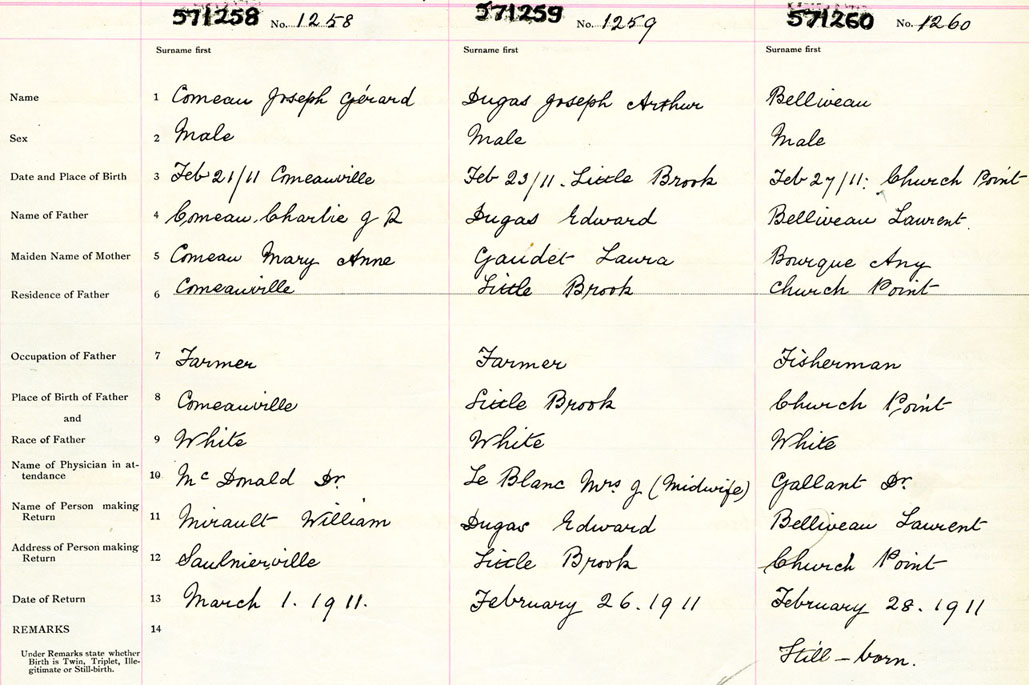 571258 No. 1258 571259 No. 1259 571260 No. 1260
Surname first Surname first Surname first
Name 1 Comeau Joseph Gérard Dugas Joseph Arthur Belliveau
Sex 2 Male Male Male
Date and Place of Birth 3 Feb 21/11 Comeauville Feb 23/11. Little Brook Feb 27/11: Church Point
Name of Father 4 Comeau, Charlie J R Dugas Edward Belliveau Laurent.
Maiden Name of Mother 5 Comeau Mary Anne Gaudet Laura Bourque Any
Residence of Father 6 Comeauville Little Brook Church Point
Occupation of Father 7 Farmer Farmer Fisherman
Place of Birth of Father 8 Comeauville Little Brook Church Point
and
Race of Father 9 White White White
Name of Physician in at-
tendance 10 Mc Donald Dr. Le Blanc Mrs J (Midwife) Gallant Dr.
Name of Person making
Return 11 Mirault William Dugas Edward Belliveau Laurent
Address of Person making
Return 12 Saulnierville Little Brook Church Point
Date of Return 13 March 1. 1911. February 26. 1911 February 28. 1911
REMARKS 14
Under Remarks state whether
Birth is Twin, Triplet, Ille-
gitimate or Still-birth.
Still-born.